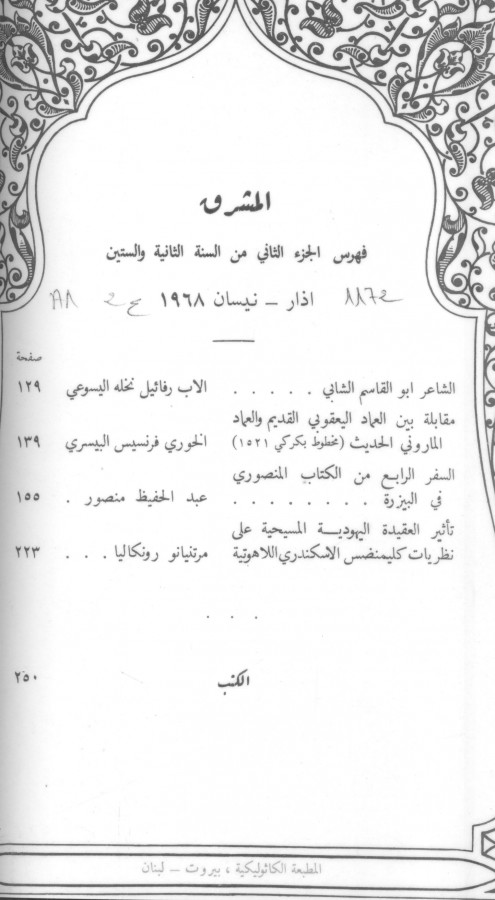 المشرق
فهرس الجزء الثاني من السنة الثانية والستين
1172 اذار – نيسان ١٩٦٨
صفحة
الشاعر ابو القاسم الشابي . . . . . الاب رفائيل نخله اليسوعي ١٢٩
مقابلة بين العماد اليعقوبي القديم والعماد
الماروني الحديث (مخطوط بكركي ١٥٢١) الخوري فرنسيس البيسري ١٣٩
السفر الرابع من الكتاب المنصوري
في البيزرة . . . . . . . . عبد الحفيظ منصور . ١٥٥
تأثير العقيدة اليهودية المسيحية على
نظريات كليمنضس الاسكندري اللاهوتية مرتنيانو رونكاليا . . . ٢٢٣
. . .
الكتب ٢٥٠
المطبعة الكاثوليكية ، بيروت – لبنان